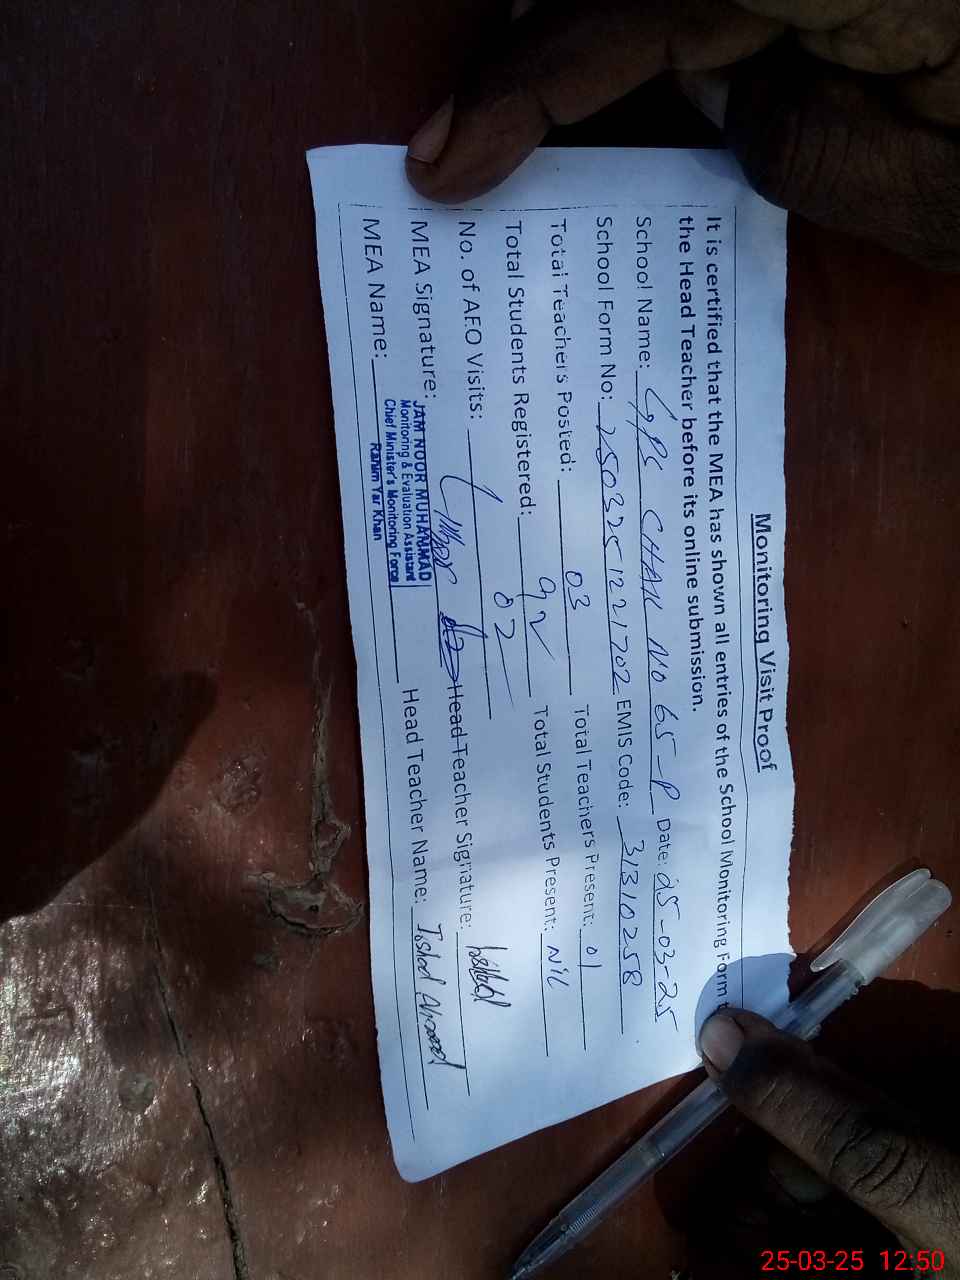 Monitoring Visit Proof
It is certified that the MEA has shown all entries of the School Monitoring Form t
the Head Teacher before its online submission.
School Name: GPS CHAK NO 65-P Date: 25-03-25
School Form No: 2503251221702 EMIS Code: 31310258
Total Teachers Posted: 03 Total Teachers Present: 01
Total Students Registered: 92 Total Students Present: Nil
No. of AEO Visits: 02
MEA Signature: Head Teacher Signature:
JAM NOOR MUHAMMAD
Monitoring & Evaluation Assistant
Chief Minister's Monitoring Force
Rahim Yar Khan
MEA Name: Head Teacher Name: Irshad Ahmad
25-03-25 12:50